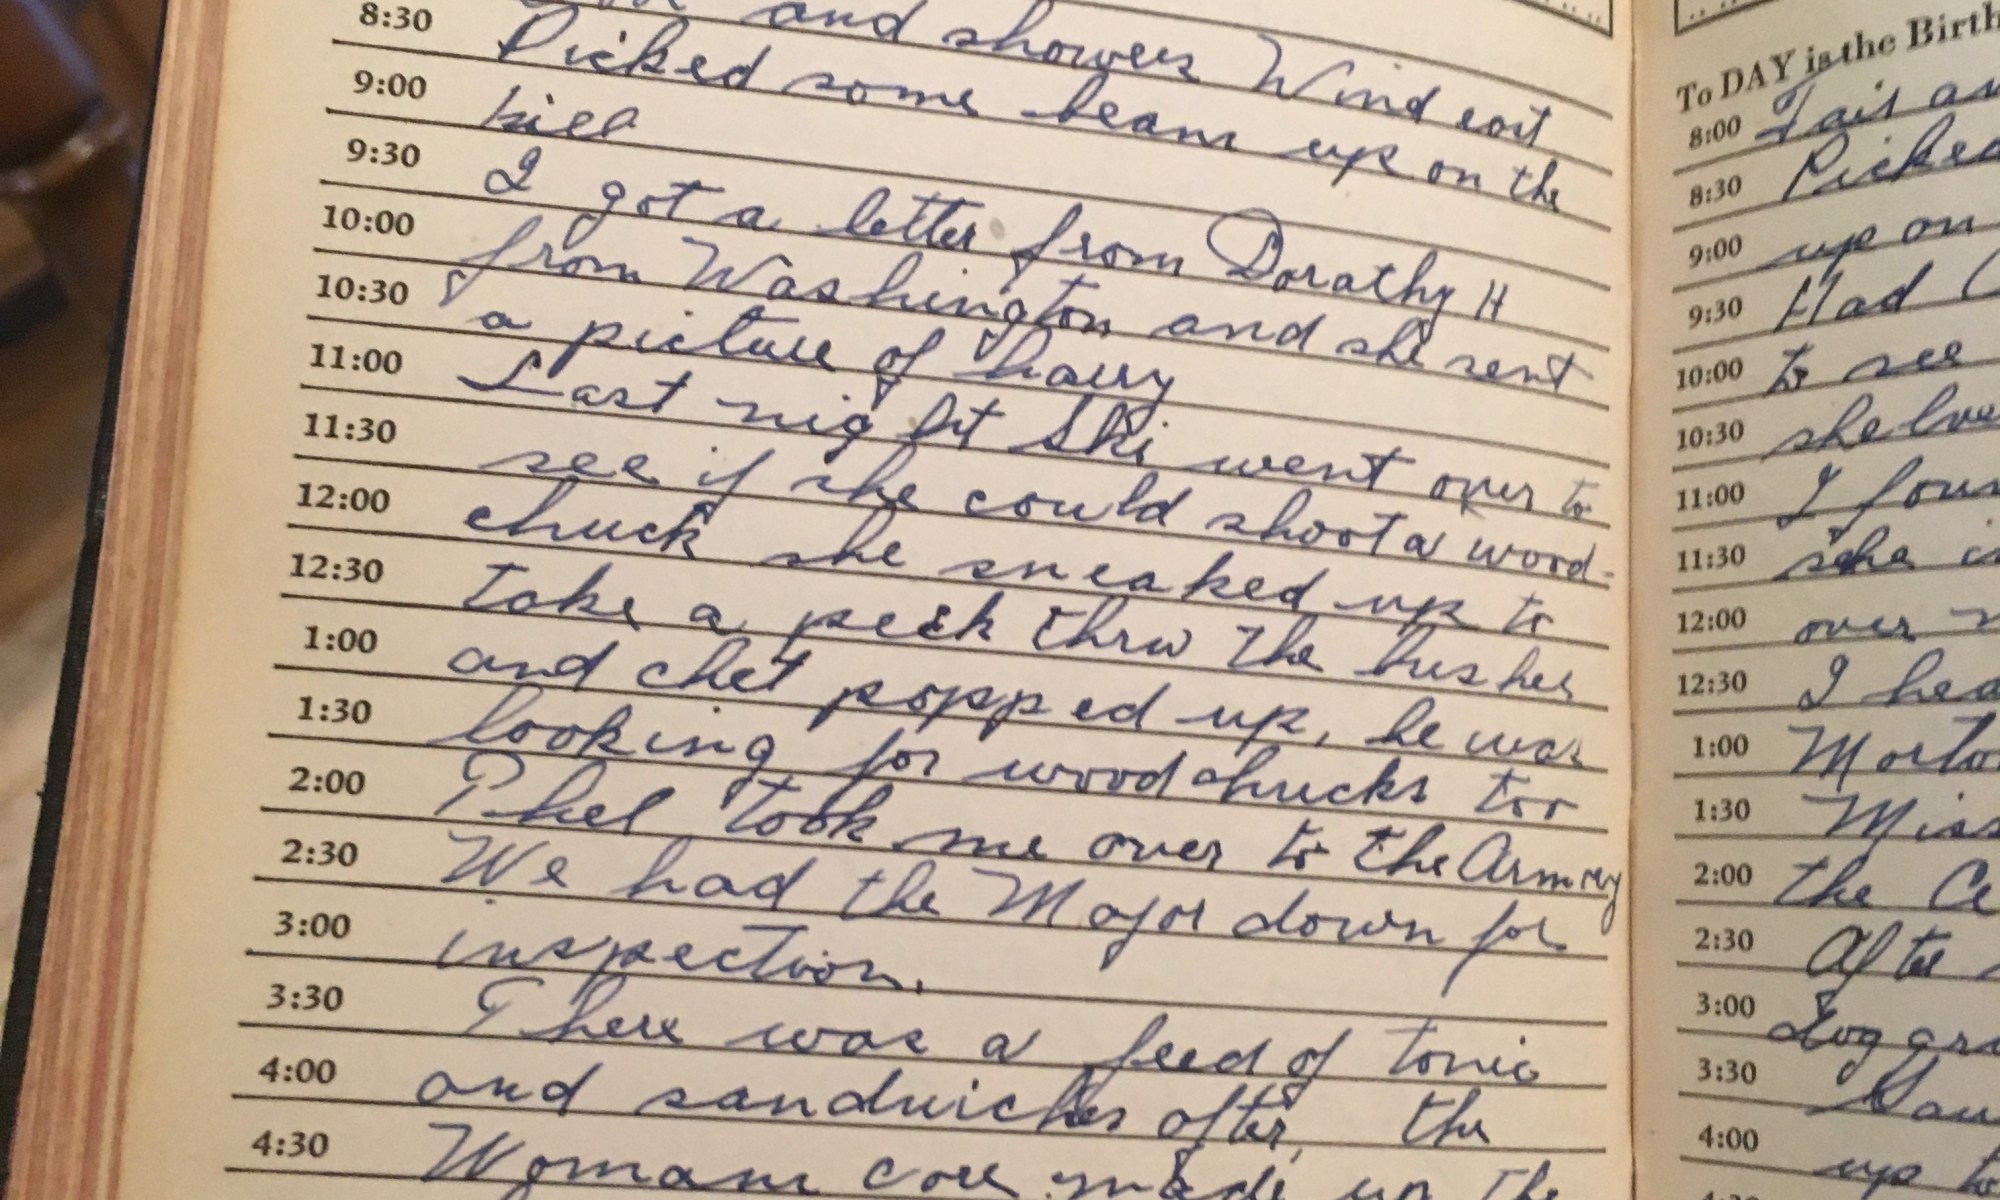 and showers Wind east
8:30 Picked some beans up on the
9:00 hill
9:30 I got a letter from Dorathy H
10:00 from Washington and she sent
10:30 a picture of harry
11:00 Last night Ski went over to
11:30 see if she could shoot a wood-
12:00 chuck she sneaked up to
12:30 take a peek thru the bushes
1:00 and chet popped up, he was
1:30 looking for woodchucks too
2:00 Phel took me over to the Armory
2:30 We had the Major down for
3:00 inspection.
3:30 There was a feed of tonic
4:00 and sandwiches after, the
4:30 Womans core made up the
To DAY is the Birth
8:00 Fair an
8:30 Picked
9:00 up on
9:30 Had
10:00 to see
10:30 she
11:00 I foun
11:30 she
12:00 over
12:30 I hea
1:00 Morto
1:30 Miss
2:00 the Ce
2:30 After
3:00 dog
3:30
4:00 up to